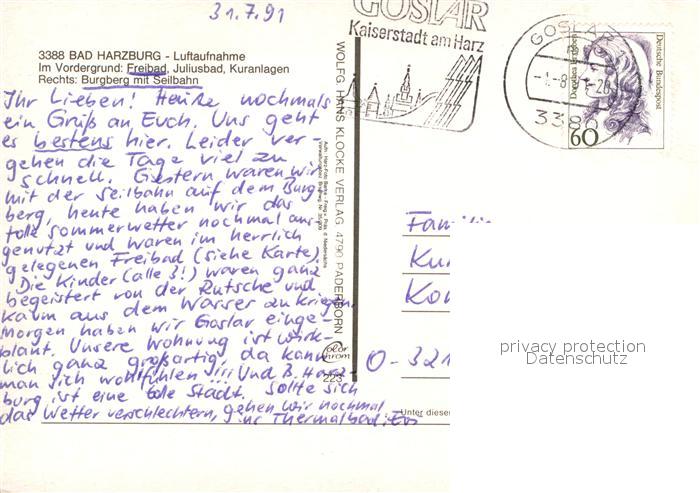 31.7.91
GOSLAR
Kaiserstadt am Harz
GOSLAR
338
60
Deutsche Bundespost
3388 BAD HARZBURG - Luftaufnahme
Im Vordergrund: Freibad, Juliusbad, Kuranlagen
Rechts: Burgberg mit Seilbahn
Ihr Lieben! Heute nochmals
ein Gruß an Euch. Uns geht
es bestens hier. Leider ver-
gehen die Tage viel zu
schnell. Gestern waren wir
mit der Seilbahn auf dem Burg-
berg, heute haben wir das
tolle Sommerwetter nochmal aus-
genutzt und waren im herrlich
gelegenen Freibad (siehe Karte).
Die Kinder (alle 3!) waren ganz
begeistert von der Rutsche und
kaum aus dem Wasser zu kriegen.
Morgen haben wir Goslar einge-
plant. Unsere Wohnung ist wirk-
lich ganz großartig, da kann
man sich wohlfühlen!!! Und B. Harz-
burg ist eine tolle Stadt. Sollte sich
das Wetter verschlechtern, gehen wir nochmal
ins Thermalbad.
WOLFG. HANS KLOCKE VERLAG 4790 PADERBORN
color
chrom
223
O-321
Unter diese
privacy protection
Datenschutz